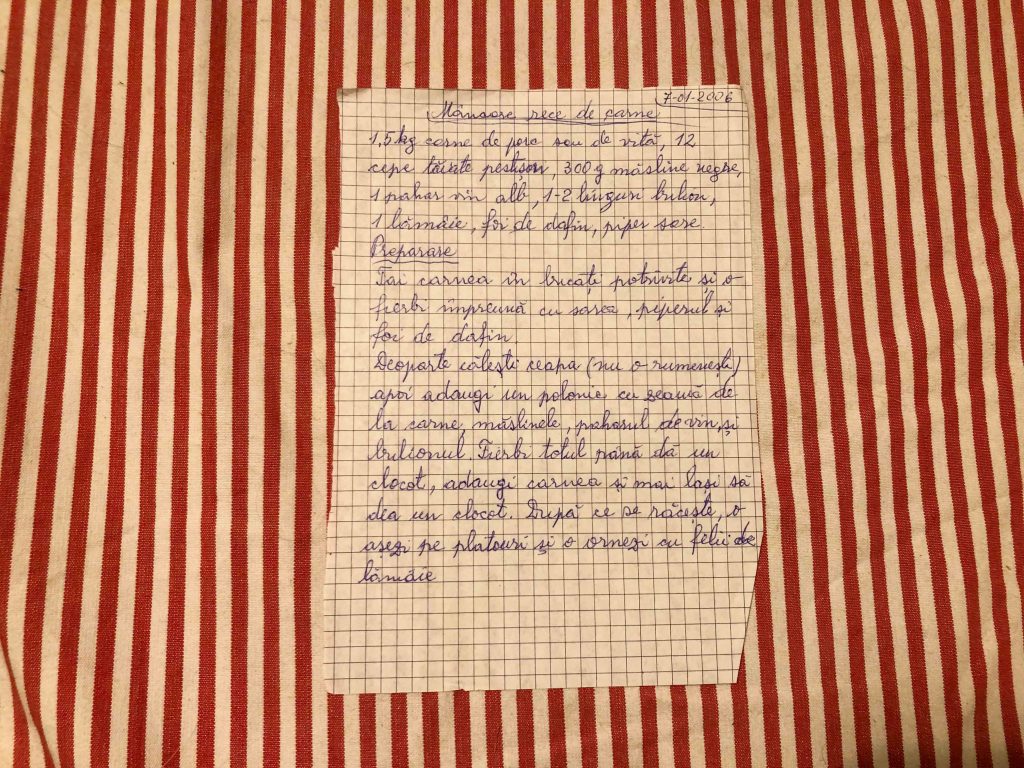 7-01-2006
Mâncare rece de carne
1,5 kg carne de porc sau de vită, 12
cepe tăiate peștișori, 300 g măsline negre,
1 pahar vin alb, 1-2 linguri bulion,
1 lămâie, foi de dafin, piper sare.
Preparare
Tai carnea în bucăți potrivite și o
fierbi împreună cu sarea, piperul și
foi de dafin.
Deoparte călești ceapa (nu o rumenești)
apoi adaugi un polonic cu zeamă de
la carne, măslinele, paharul de vin, și
bulionul. Fierbi totul până dă un
clocot, adaugi carnea și mai lași să
dea un clocot. După ce se răcește, o
așezi pe platouri și o ornezi cu felii de
lămâie